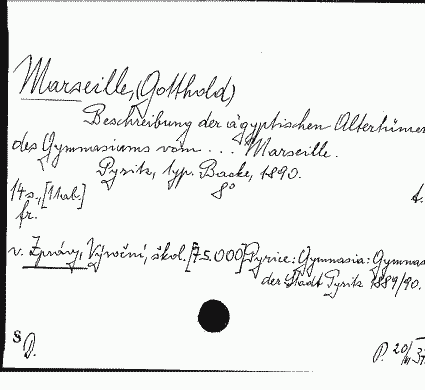 Marseille, (Gotthold)
Beschreibung der ägyptischen Altertümer
des Gymnasiums vom ... Marseille.
Pyritz, typ. Backe, 1890.
8°
14 s., [1 tab.]
fr.
v. Zprávy, Výroční, škol. [75.000] Pyrice: Gymnasia: Gymnas
der Stadt Pyritz 1889/90.
S
D.